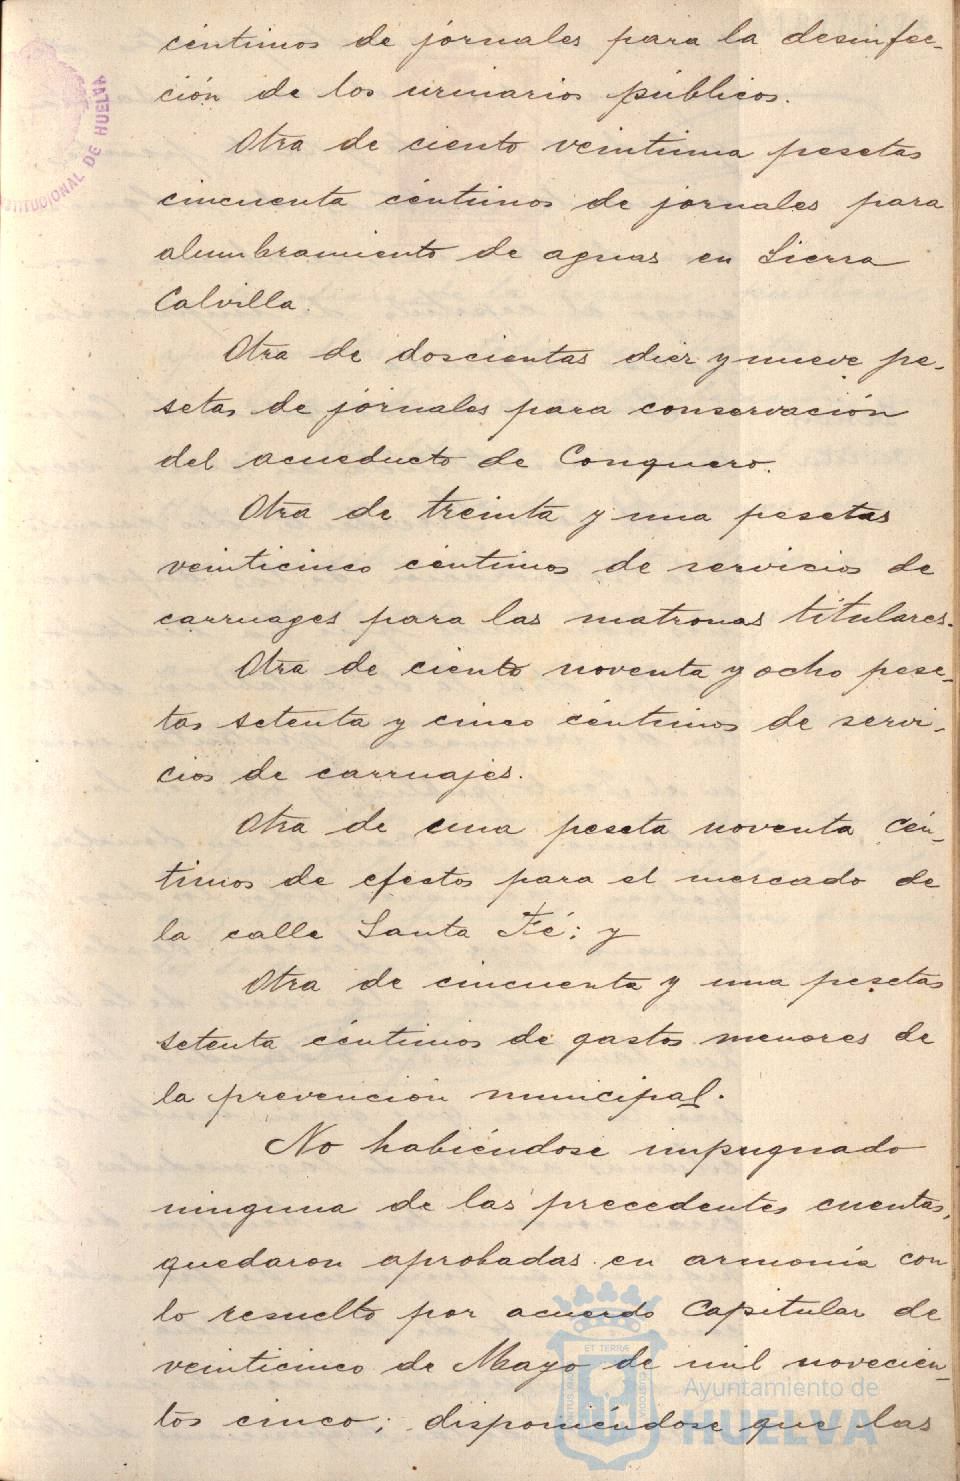 céntimos de jornales para la desinfec-
ción de los urinarios públicos.
Otra de ciento veintiuna pesetas
cincuenta céntimos de jornales para
alumbramiento de aguas en Sierra
Calvilla.
Otra de doscientas diez y nueve pe-
setas de jornales para conservación
del acueducto de Conquero.
Otra de treinta y una pesetas
veinticinco céntimos de servicios de
carruages para las matronas titulares.
Otra de ciento noventa y ocho pese-
tas setenta y cinco céntimos de servi-
cios de carruajes.
Otra de una peseta noventa cén-
timos de efectos para el mercado de
la calle Santa Fé; y
Otra de cincuenta y una pesetas
setenta céntimos de gastos menores de
la prevención municipal.
No habiéndose impugnado
ninguna de las precedentes cuentas,
quedaron aprobadas en armonía con
lo resuelto por acuerdo Capitular de
veinticinco de Mayo de mil novecien-
tos cinco; disponiéndose que las
TITUCIONAL DE HUELVA
ET TERRÆ
Ayuntamiento de
HUELVA